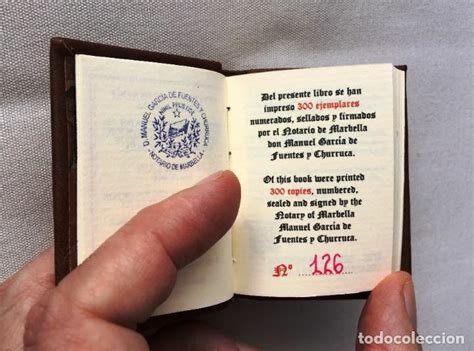 D. MANUEL GARCIA DE FUENTES Y CHURRUCA
NOTARIO DE MARBELLA
Del presente libro se han
impreso 300 ejemplares
numerados, sellados y firmados
por el Notario de Marbella
don Manuel García de
Fuentes y Churruca.
Of this book were printed
300 copies, numbered,
sealed and signed by the
Notary of Marbella
Manuel García de
Fuentes y Churruca.
Nº 126
todocoleccion